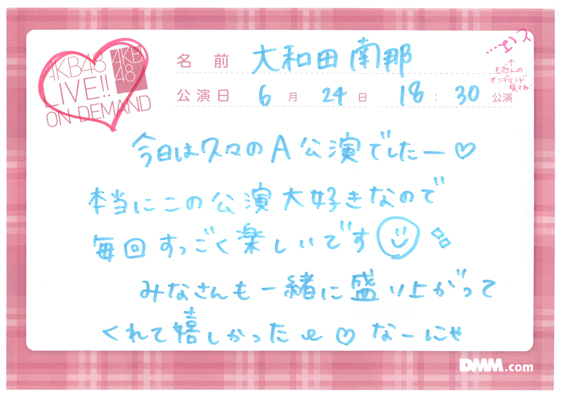 AKB48
LIVE!!
ON DEMAND
AKB
48
名前 大和田南那
公演日 6月24日 18:30公演
今日は久々のA公演でしたー♡
本当にこの公演大好きなので
毎回すっごく楽しいです
みなさんも一緒に盛り上がって
くれて嬉しかった♡ なーにゃ
DMM.com